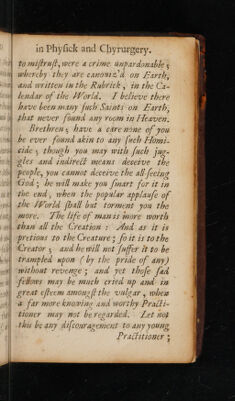 in Physick and Chyrurgery.
to mistrust, were a crime unpardonable;
whereby they are canoniz'd on Earth,
and written in the Rubrick, in the Ca-
lendar of the World. I believe there
have been many such Saints on Earth,
that never found any room in Heaven.
Brethren; have a care none of you
be ever found akin to any such Homi-
cide; though you may with such jug-
gles and indirect means deceive the
people, you cannot deceive the all-seeing
God; he will make you smart for it in
the end, when the popular applause of
the World shall but torment you the
more. The life of man is more worth
than all the Creation: And as it is
pretious to the Creature; so it is to the
Creator; and he will not suffer it to be
trampled upon (by the pride of any)
without revenge; and yet those sad
fellows may be much cried up and in
great esteem amongst the vulgar, when
a far more knowing and worthy Practi-
tioner may not be regarded. Let not
this be any discouragement to any young
Practitioner;